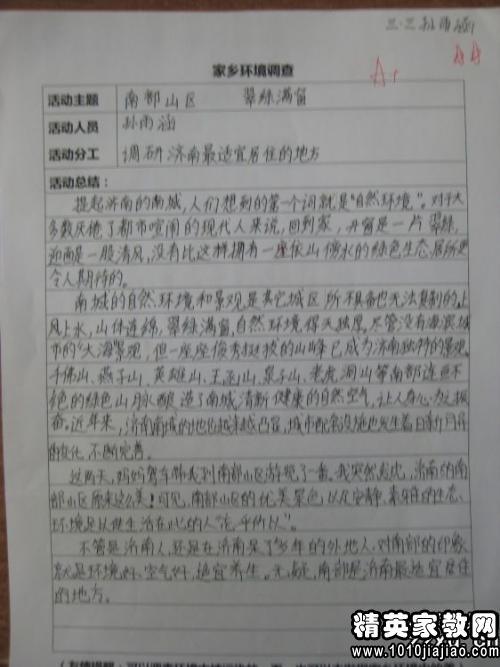 三.三孙雨涵
A+
家乡环境调查
活动主题 南部山区 翠绿满窗
活动人员 孙雨涵
活动分工 调研济南最适宜居住的地方
活动总结：
提起济南的南城，人们想到的第一个词就是“自然环境”。对于大
多数厌倦了都市喧闹的现代人来说，回到家，开窗是一片翠绿，
迎面是一股清风，没有比这样拥有一座依山傍水的绿色生态居所更
令人期待的。
南城的自然环境和景观是其它城区所不具备也无法复制的。上
风上水，山体连绵，翠绿满窗，自然环境得天独厚。尽管没有海滨城
市的“大海”景观，但一座座俊秀挺拔的山峰已成为济南独特的景观。
千佛山、燕子山、英雄山、王函山、泉子山、老虎洞山等南部连绵不
绝的绿色山脉酿造了南城清新健康的自然空气，让人身心为之振
奋。近年来，济南南城的地位越来越凸显，城市配套设施也发生着日新月异
的变化，不断完善。
这两天，妈妈驾车带我到南部山区游玩了一番。我突然发现，济南的南
部山区原来这么美！可见，南部山区的优美景色以及安静、素雅的生态
环境是从世生活在此的人“
不管是济南人，还是在济南呆了多年的外地人，对南部的印象
就是环境好，空气好，适宜养生。无疑，南部是济南最适宜居住
的地方。
精英家教网
www.1010jiajiao.com